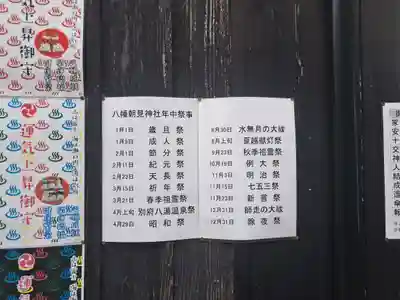 昇御守
運気上昇御守
運気
八幡朝見神社年中祭事
1月1日 歳旦祭
成人祭
節分祭
紀元祭
2月23日 天長祭
祈年祭
3月21日 春季祖霊祭
4月上旬 別府八湯温泉祭
4月29日 昭和祭
6月30日 水無月の大祓
夏越献灯祭
9月23日 秋季祖霊祭
例大祭
11月3日 明治祭
11月15日 七五三祭
11月23日 新嘗祭
師走の大祓
12月31日 除夜祭